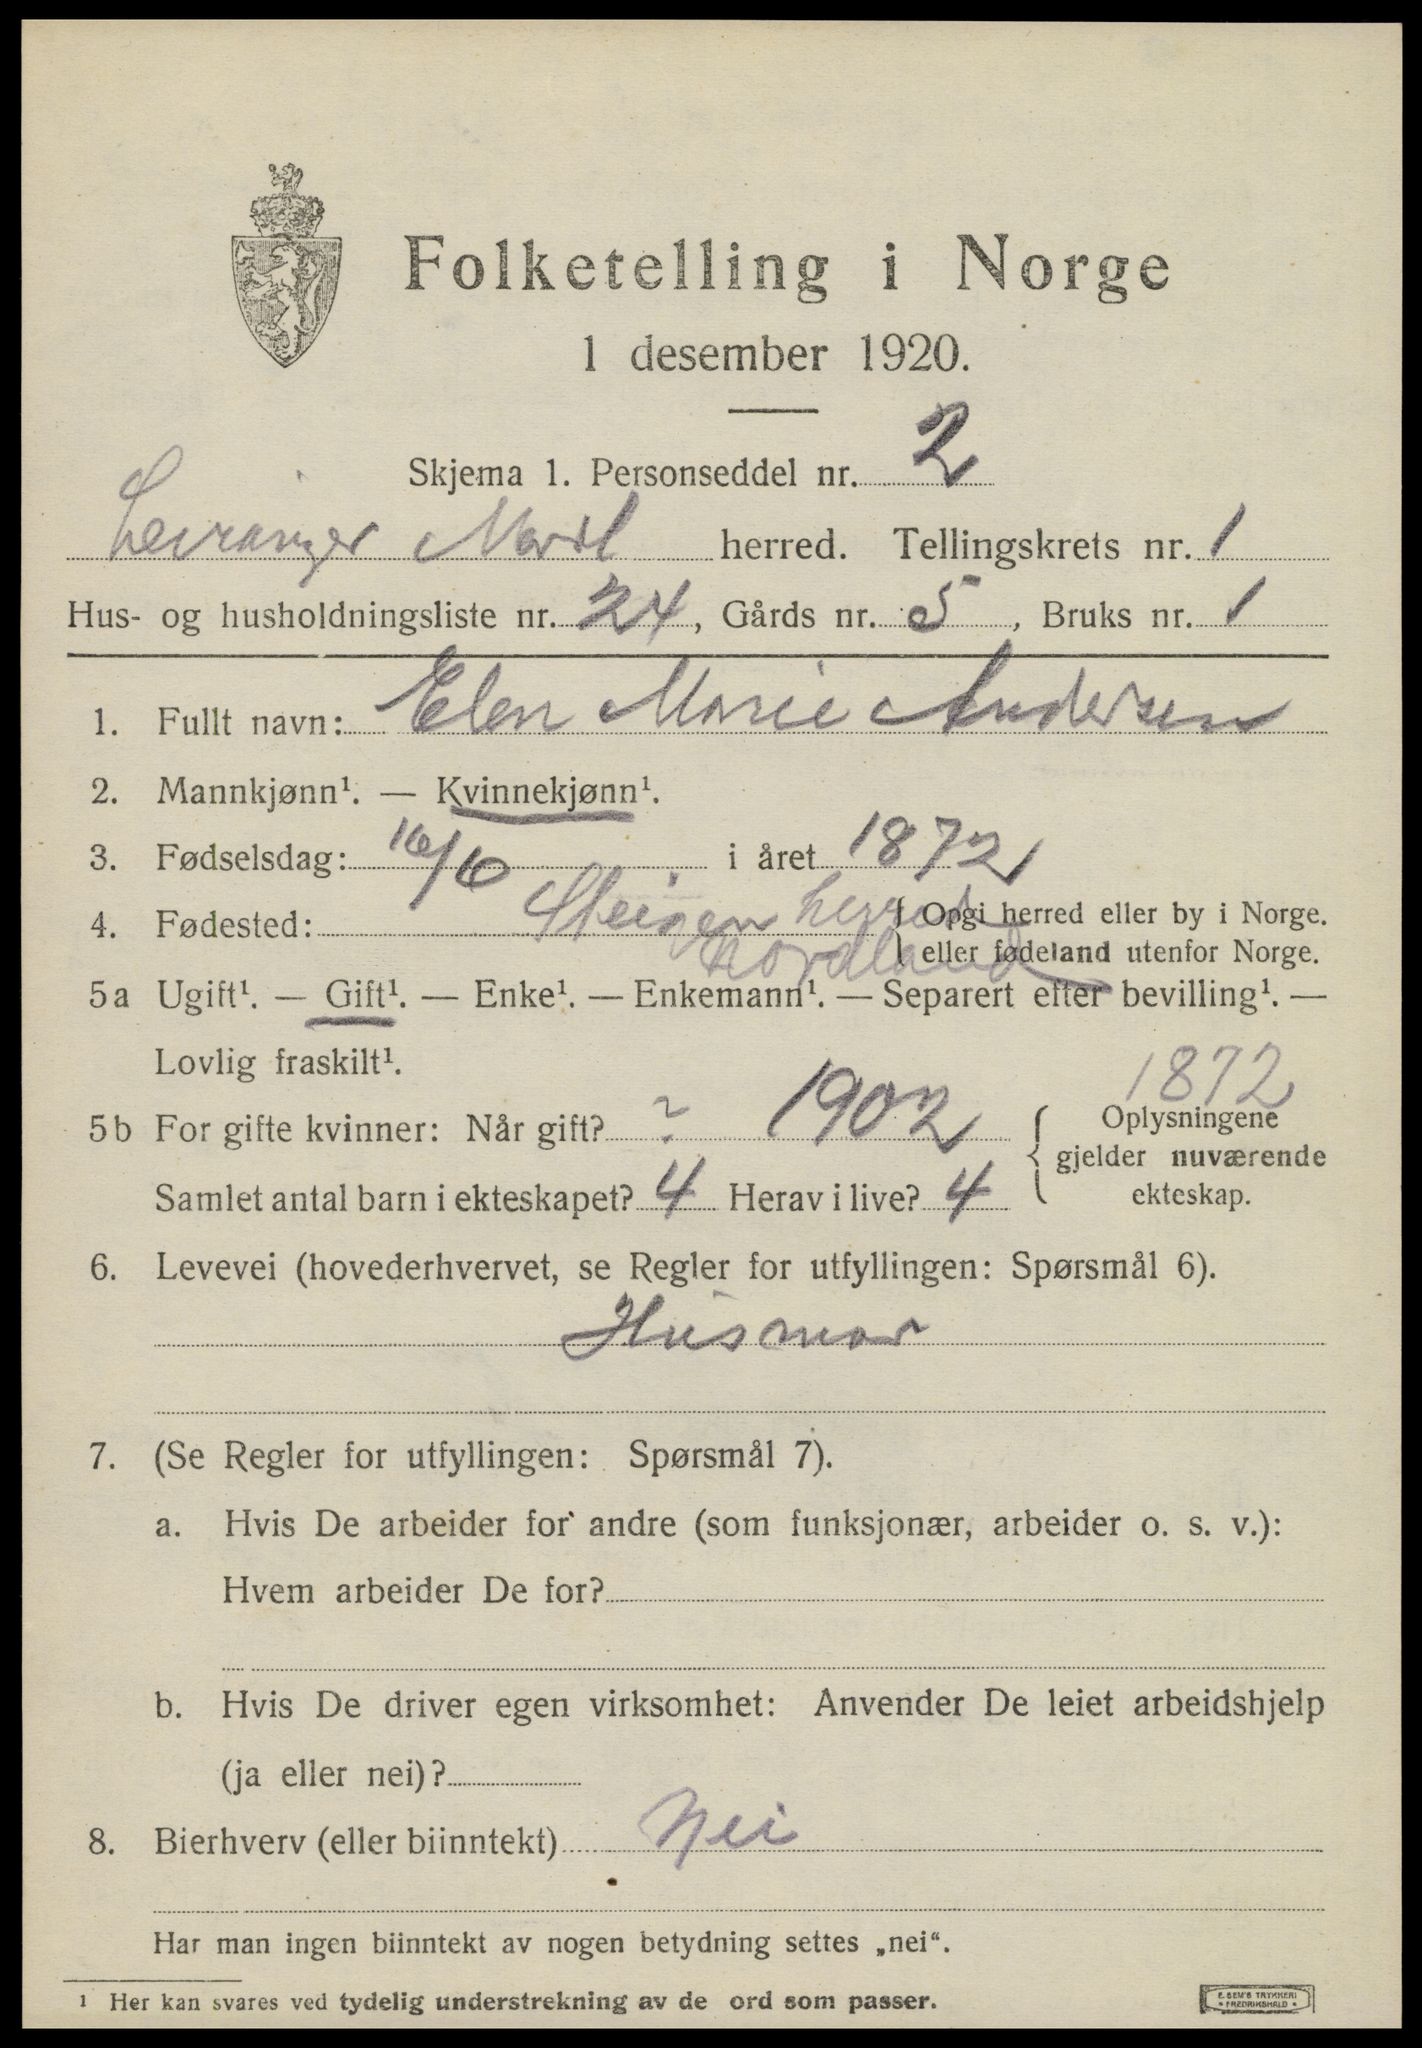 Folketelling i Norge
1 desember 1920.
Skjema 1. Personseddel nr. 2
Leiranger herred. Tellingskrets nr. 1
Hus- og husholdningsliste nr. 24, Gårds nr. 5, Bruks nr. 1
1. Fullt navn: Elen Marie Andersen
2. Mannkjønn¹. — Kvinnekjønn¹.
3. Fødselsdag: 16/6 i året 1872
4. Fødested: Steigen herred { Opgi herred eller by i Norge.
nordland eller fødeland utenfor Norge.
5a Ugift¹. — Gift¹. — Enke¹. — Enkemann¹. — Separert efter bevilling¹. —
Lovlig fraskilt¹.
1872
5b For gifte kvinner: Når gift? ? 1902 { Oplysningene
gjelder nuværende
Samlet antal barn i ekteskapet? 4 Herav i live? 4 ekteskap.
6. Levevei (hovederhvervet, se Regler for utfyllingen: Spørsmål 6).
Husmor
7. (Se Regler for utfyllingen: Spørsmål 7).
a. Hvis De arbeider for andre (som funksjonær, arbeider o. s. v.):
Hvem arbeider De for?
b. Hvis De driver egen virksomhet: Anvender De leiet arbeidshjelp
(ja eller nei)?
8. Bierhverv (eller biinntekt) Nei
Har man ingen biinntekt av nogen betydning settes „nei“.
¹ Her kan svares ved tydelig understrekning av de ord som passer.
E. SEM'S TRYKKERI
• FREDRIKSHALD •